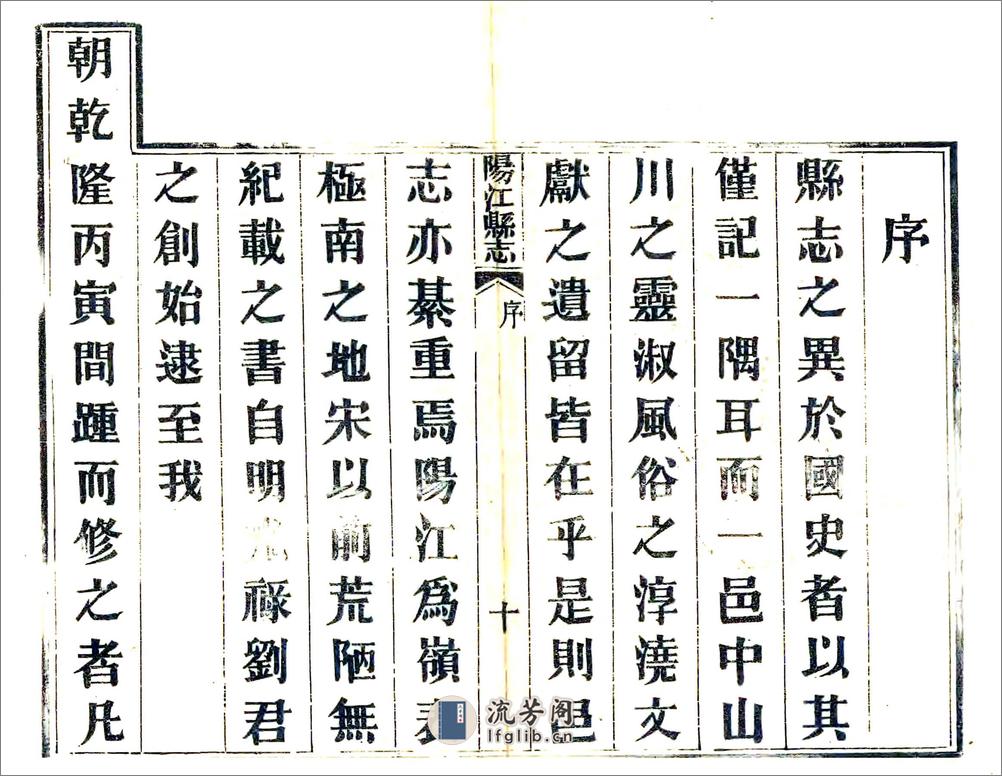 序
縣志之異於國史者以其
僅記一隅耳而一邑中山
川之靈淑風俗之淳澆文
獻之遺留皆在乎是則邑
陽江縣志
序
十
志亦綦重焉陽江爲嶺表
極南之地宋以前荒陋無
紀載之書自明光祿劉君
之創始逮至我
朝乾隆丙寅間踵而修之者凡
流芳阁
lfglib.cn